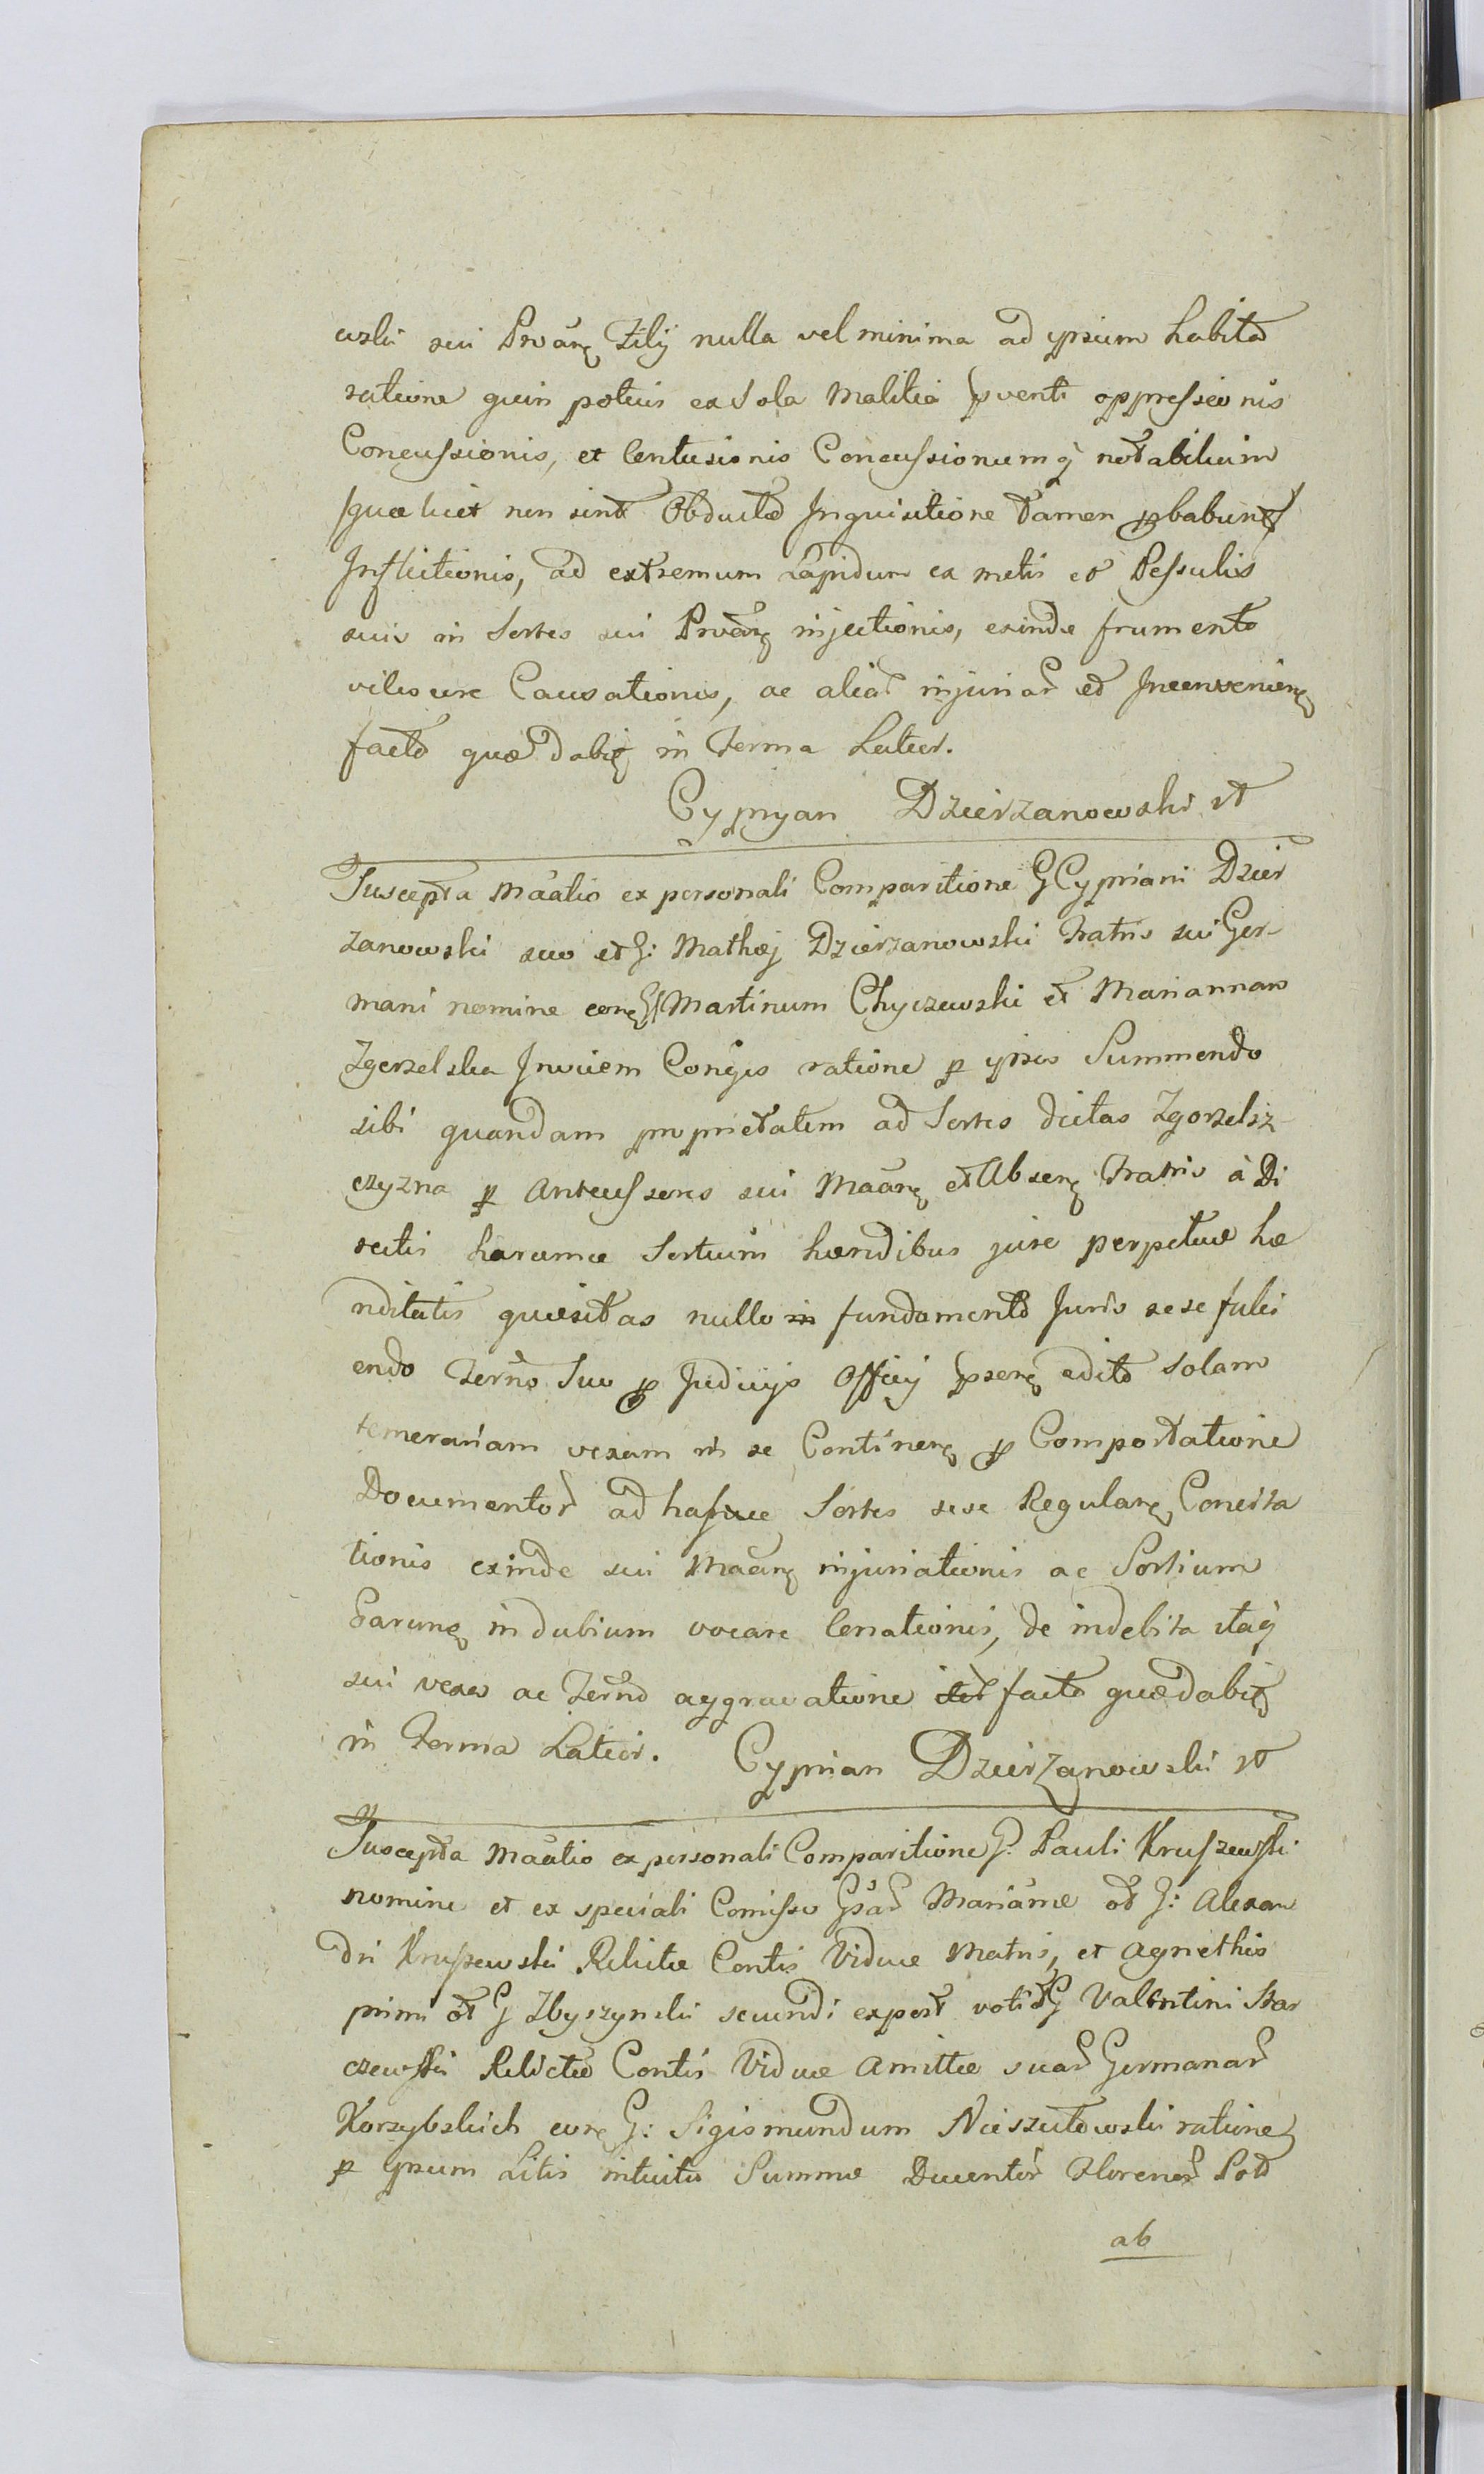 wski sui Prõtãnẹ Filij nulla vel minima ad ipsum habita
ratione quin potius ex Sola Malitia pvent oppressionis
Concussionis, et Contusionis Concussionumq notabilium
quæ licet non sint Obductæ Inquisitione tamen pbabunt
Inflictionis, ad extremum Lapidum ex metis et Pessulis
suis in Sortes sui injectionis, exinde frumento
vilescere Causationis, ac aliar injuriar et Inconvenien
facto quæ dabit in Termo Latior.
Cypryan Dzierzanowski
Suscepta Maãtio ex personali Comparitione G Cypriani Dzier
zanowski suo et G: Mathæj Dzierzanowski Fratris sui Ger-
mani nomine con GG Martinum Chyczewski et Mariannam
Zgorzelska Invicem Conges ratione p ipsos Summendo
sibi quandam proprietatem ad Sortes dictas Zgorzelsz-
czyzna p Antecessores sui Maãn et Absen Fratris à Di
rectis harumce Sortium hæredibus jure perpetuæ hæ
reditatis quæsitas nullo in fundamento Juris sese fulci
endo Termo Suo p Judicijs Officij psen edito Solam
temerariam vexam in se Continen p Comportatione
Documentor ad hasce Sortes sese Regulan Concita
tionis exinde sui Maãn injuriationis ac Sortium
Earum in dubium vocare Conationis, de indebita itaq
sui vexa ac Termo aggravatione facto quæ dabit
in Termo Latior. Cyprian Dzierzanowski
Suscepta Maãtio ex personali Comparitione G. Pauli Kruszewski
nomine et ex speciali Comisso Gsar Mariãnæ ol G: Alexan
dri Kruszewski Relictæ Contis Viduæ Matris, et Agnethis
primi ol G Zbyszynski secundi exper voti ol G Valentini Skar
czewski Relictæ Contis Viduæ Amittæ suar Germanar
Korzybskich con G: Sigismundum Nieszutowski ratione
p ipsum Litis intuitu Summæ Ducentor Florenor Pol
ab